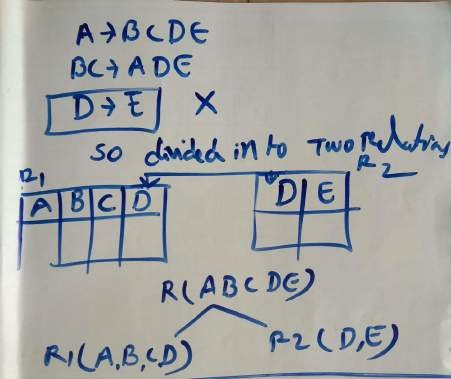 A→BCDE
BC→ADE
D→E X
so divided in to Two Relations
R1 R2
A B C D D E
R(ABCDE)
R1(A,B,CD) R2(D,E)